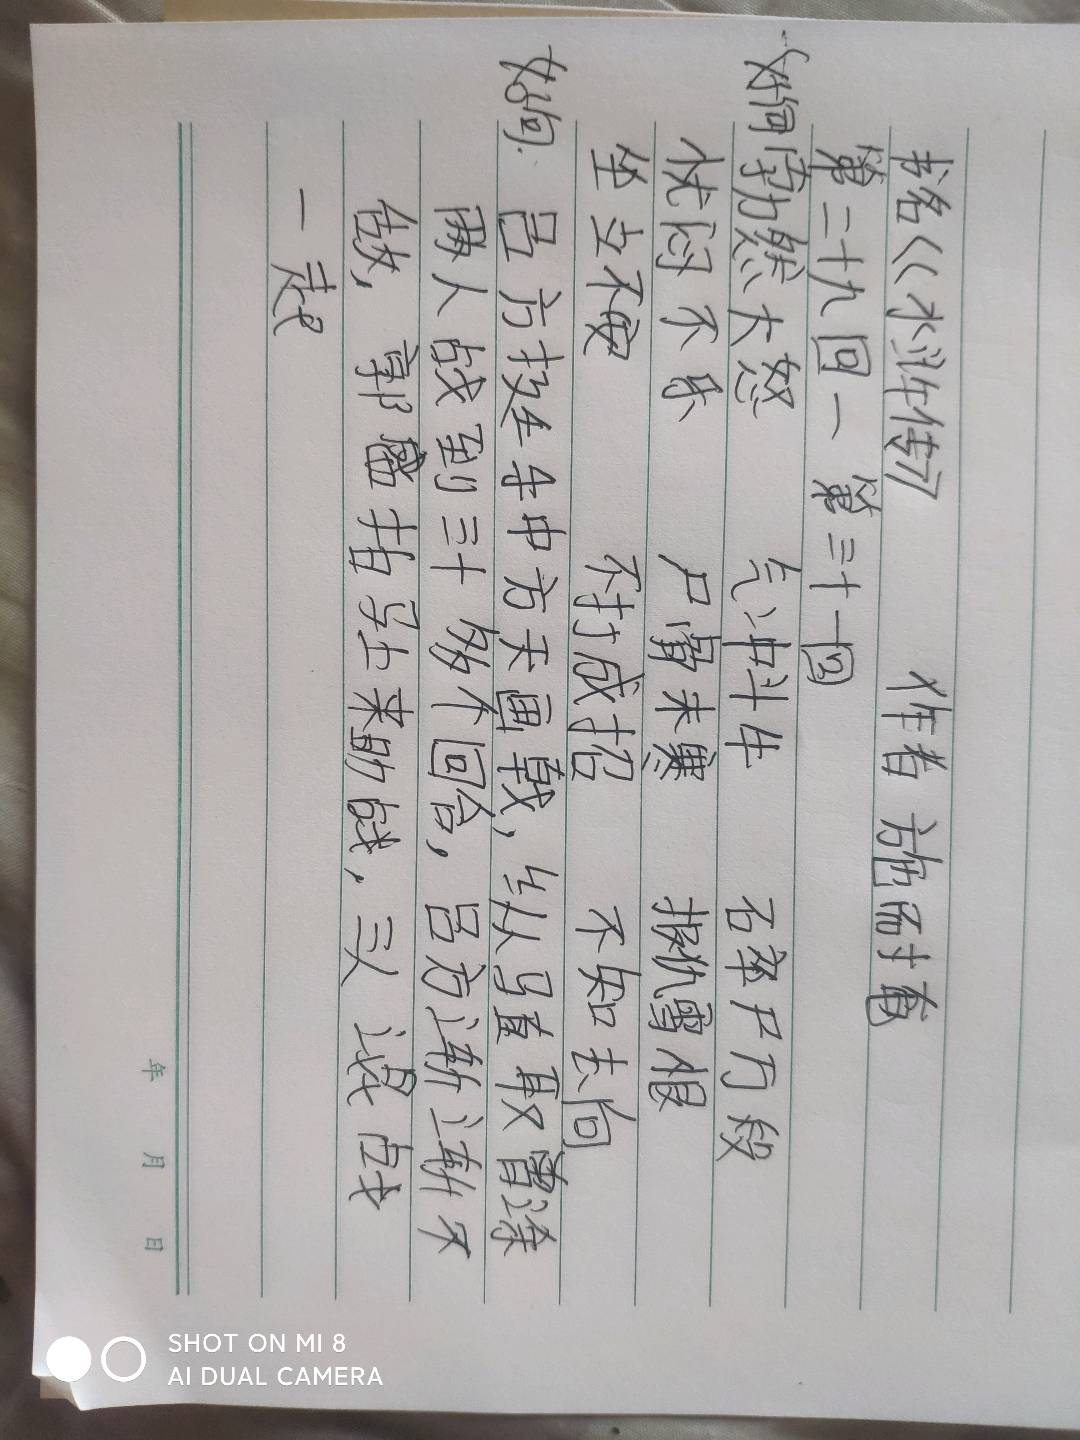 书名《水浒传》 作者 施耐庵
第二十九回一 第三十一回
好词 勃然大怒 气冲斗牛 碎尸万段
忧闷不乐 尸骨未寒 报仇雪恨
坐立不安 不打成招 不知去向
好句. 吕方挺手中方天画戟,纵马直取曾涂
两人战到三十多个回合,吕方渐渐不
敌,郭盛拍马上来助战,三人混战
一起
年 月 日
SHOT ON MI 8
AI DUAL CAMERA